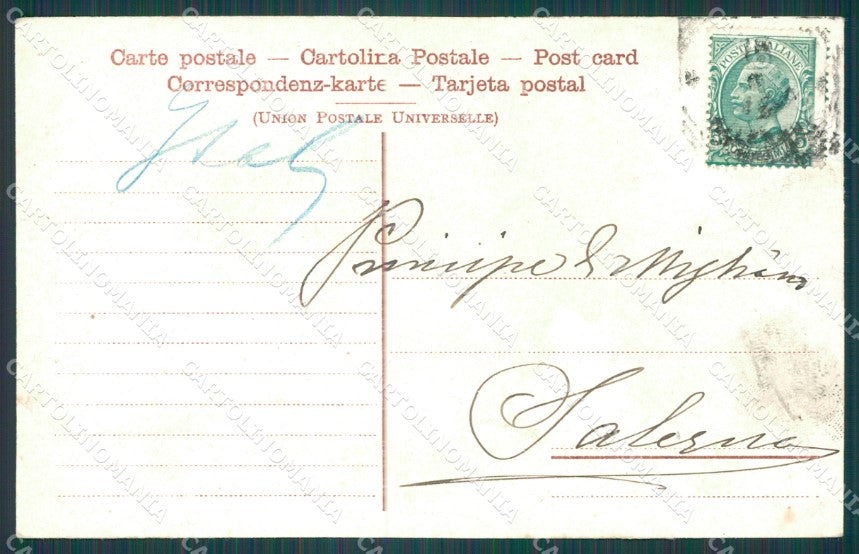 Carte postale — Cartolina Postale — Post card
Correspondenz-karte — Tarjeta postal
(Union Postale Universelle)
POSTE ITALIANE
Principe
Salerno
CARTOLINOMANIA